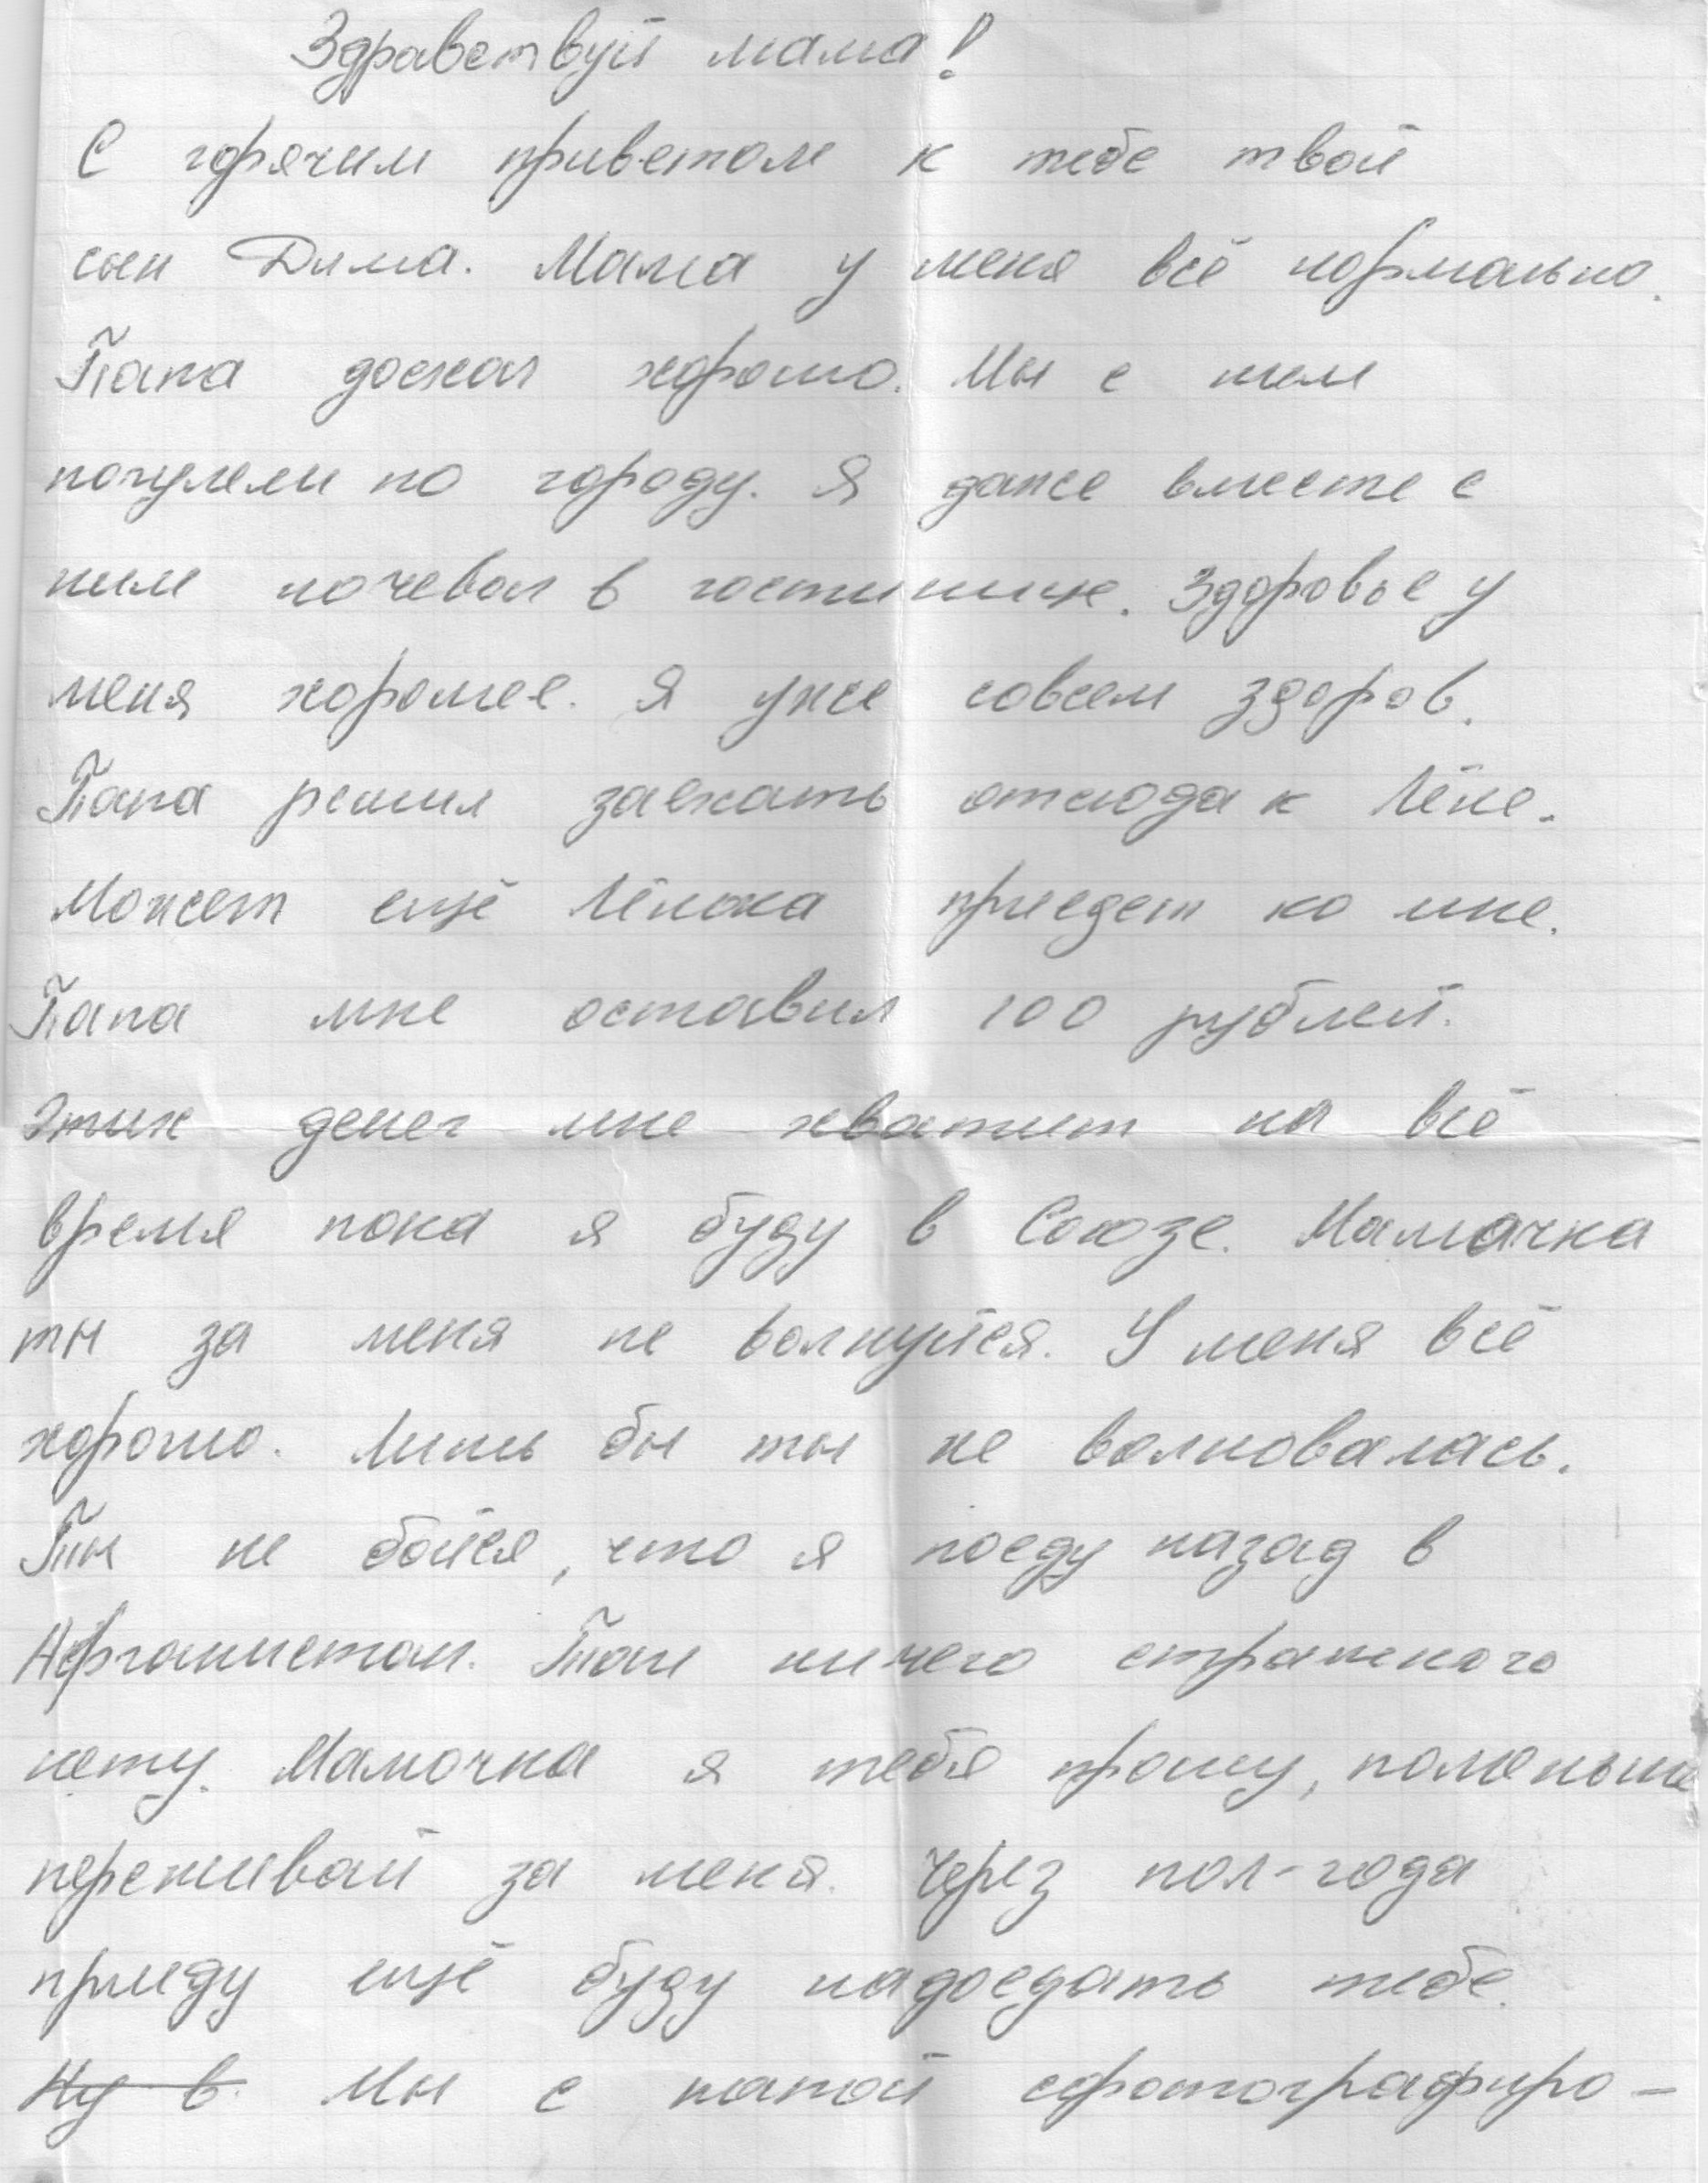 Здравствуй мама!
С горячим приветом к тебе твой
сын Дима. Мама у меня всё нормально.
Папа доехал хорошо. Мы с ним
погуляли по городу. Я даже вместе с
ним ночевал в гостинице. Здоровье у
меня хорошее. Я уже совсем здоров.
Папа решил заехать отсюда к Лёне.
Может ещё Лёнька приедет ко мне.
Папа мне оставил 100 рублей.
Этих денег мне хватит на всё
время пока я буду в Союзе. Мамочка
ты за меня не волнуйся. У меня всё
хорошо. Лишь бы ты не волновалась.
Ты не бойся, что я поеду назад в
Афганистан. Там ничего страшного
нету. Мамочка я тебя прошу, поменьше
переживай за меня. Через пол-года
приеду ещё буду надоедать тебе.
Ну в. Мы с папой сфотографиро-